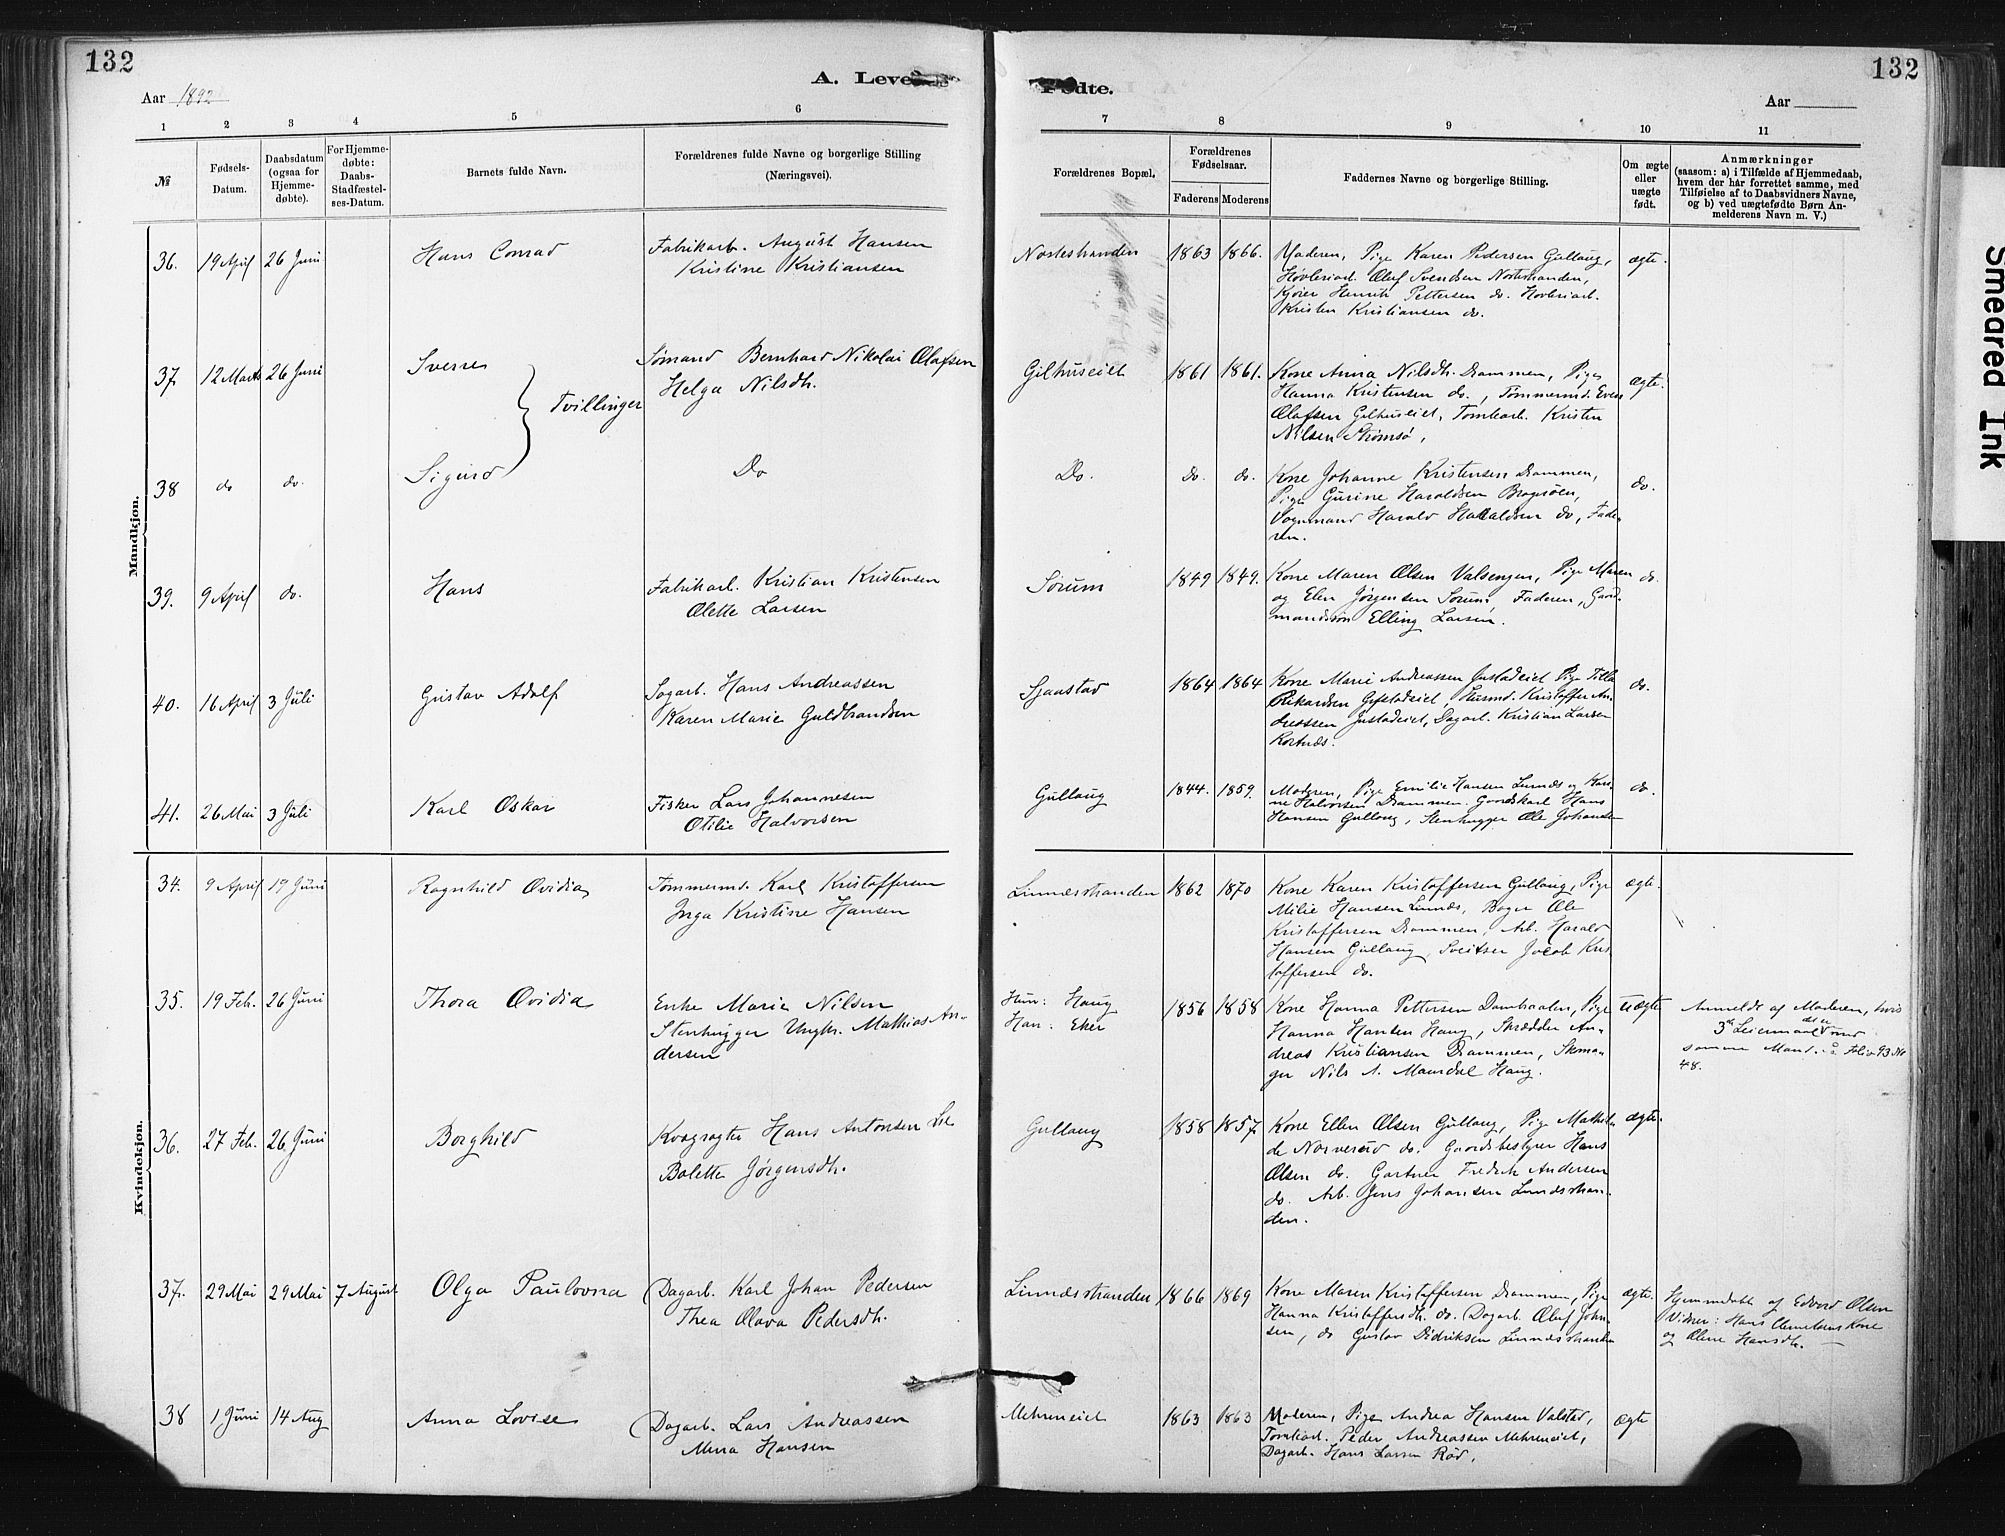 132
132
A. Leve
Fødte.
Aar 1892
Aar
1 2 3 4 5 6
7 8 9 10 11
№
Fødsels-
Datum.
Daabsdatum
(ogsaa for
Hjemme-
døbte).
For Hjemme-
døbte:
Daabs-
Stadfæstel-
ses-Datum.
Barnets fulde Navn.
Forældrenes fulde Navne og borgerlige Stilling
(Næringsvei).
Forældrenes Bopæl.
Forældrenes
Fødselsaar.
Faderens Moderens
Faddernes Navne og borgerlige Stilling.
Om ægte
eller
uægte
født.
Anmærkninger
(saasom: a) i Tilfælde af Hjemmedaab,
hvem der har forrettet samme, med
Tilføielse af to Daabsvidners Navne,
og b) ved uægtefødte Børn An-
melderens Navn m. V.)
Mandkjøn.
36. 19 April 26 Juni Hans Conrad
Fabrikarb. August Hansen
Kristine Kristiansen
Nostestranden 1863 1866.
Moderen, Pige Karen Pedersen Gullaug,
Høvleriarb. Oluf Svendsen Nostestranden,
Kjører Henrik Pettersen do. Hovleriarb.
Kristen Kristiansen do.
ægte.
37 12 Marts 26 Juni Sverre
Tvillinger
Sømand Bernhard Nikolai Olafsen
Helga Nilsdh.
Gilhuseiet 1861 1861.
Kone Anna Nilsdh. Drammen, Pige
Hanna Kristensen do., Tømmermd. Even
Olafsen Gilhuseiet, Tomtearb. Kristen
Nilsen Strømsø,
ægte.
38 do do. Sigurd
Do
Do. do. do.
Kone Johanne Kristensen Drammen,
Pige Gurine Haraldsen Bragerøen,
Vognmand Harald Haraldsen do, Fade-
ren.
do.
39. 9 April do. Hans
Fabrikarb. Kristian Kristensen
Olette Larsen
Sørum 1849 1849.
Kone Maren Olsen Valsengen, Pige Maren
og Elen Jørgensen Sørum, Faderen, Gaard-
mandssøn Elling Larsen.
do.
40. 16 April 3 Juli Gustav Adolf
Sagarb. Hans Andreassen
Karen Marie Guldbrandsen
Sjaastad 1864 1864
Kone Marie Andreassen Justadeiet Pige Tilla
Rikardsen Gjestadeiet, Husmd. Kristoffer An-
dreassen Justadeiet, Dagarb. Kristian Larsen
do.
41. 26 Mai 3 Juli Karl Oskar
Fisker Lars Johannesen
Otilie Halvorsen
Gullaug 1844. 1859.
Moderen, Pige Emilie Hansen Linnæs og Kari-
ne Halvorsen Drammen. Gaardskarl Hans
Hansen Gullaug, Stenhugger Ole Johansen
do.
Kvindekjøn.
34. 9 April 19 Juni Ragnhild Ovidia
Tømmermd. Karl Kristoffersen
Inga Kristine Hansen
Linnæsstranden 1862 1870
Kone Karen Kristoffersen Gullaug, Pige
Milie Hansen Linnæs, Bager Ole
Kristoffersen Drammen, Arb. Harald
Hansen Gullaug, Sveitser Jacob Kris
toffersen do.
ægte.
35. 19 Feb. 26 Juni Thora Ovidia
Enke Marie Nilsen
Stenhugger Ungkr. Mathias An-
dersen
Hun: Haug
Han: Eker
1856 1858
Kone Hanna Pettersen Damhaalen, Pige
Hanna Hansen Haug, Skrædder An-
dreas Kristiansen Drammen, Skoma-
ger Nils A. Mamdal Haug.
uægte
Anmeldt af Moderen, hvis
3die Leiermaal det er med
samme Mand. Folio 93 No
48.
36. 27 Feb. 26 Juni Borghild
Kvægrøgter Hans Antonsen
Bolette Jørgensdh.
Gullaug 1858 1857
Kone Ellen Olsen Gullaug, Pige Mathil-
de Narverud do. Gaardsbestyrer Hans
Olsen do. Gartner Fredrik Andersen
do. Arb. Jens Johansen Linnæsstran-
den.
ægte.
37. 29 Mai 29 Mai 7 August Olga Paulovna
Dagarb. Karl Johan Pedersen
Thea Olava Pedersdh.
Linnæsstranden 1866 1869
Kone Maren Kristoffersen Drammen, Pige
Hanna Kristoffersdh. do. Dagarb. Oluf John-
sen, do Gustav Didriksen Linnæsstranden
ægte.
Hjemmedøbt af Edvard Olsen
Vidner: Hans Clemetsens Kone
og Oline Hansdh.
38 1 Juni 14 Aug Anna Lovise
Dagarb. Lars Andreassen
Mina Hansen
Mehreneiet 1863 1863
Moderen, Pige Andrea Hansen Valstad,
Tomtearb. Peder Andreassen Mehreneiet,
Dagarb. Hans Larsen Rød.
ægte
Smeared Ink